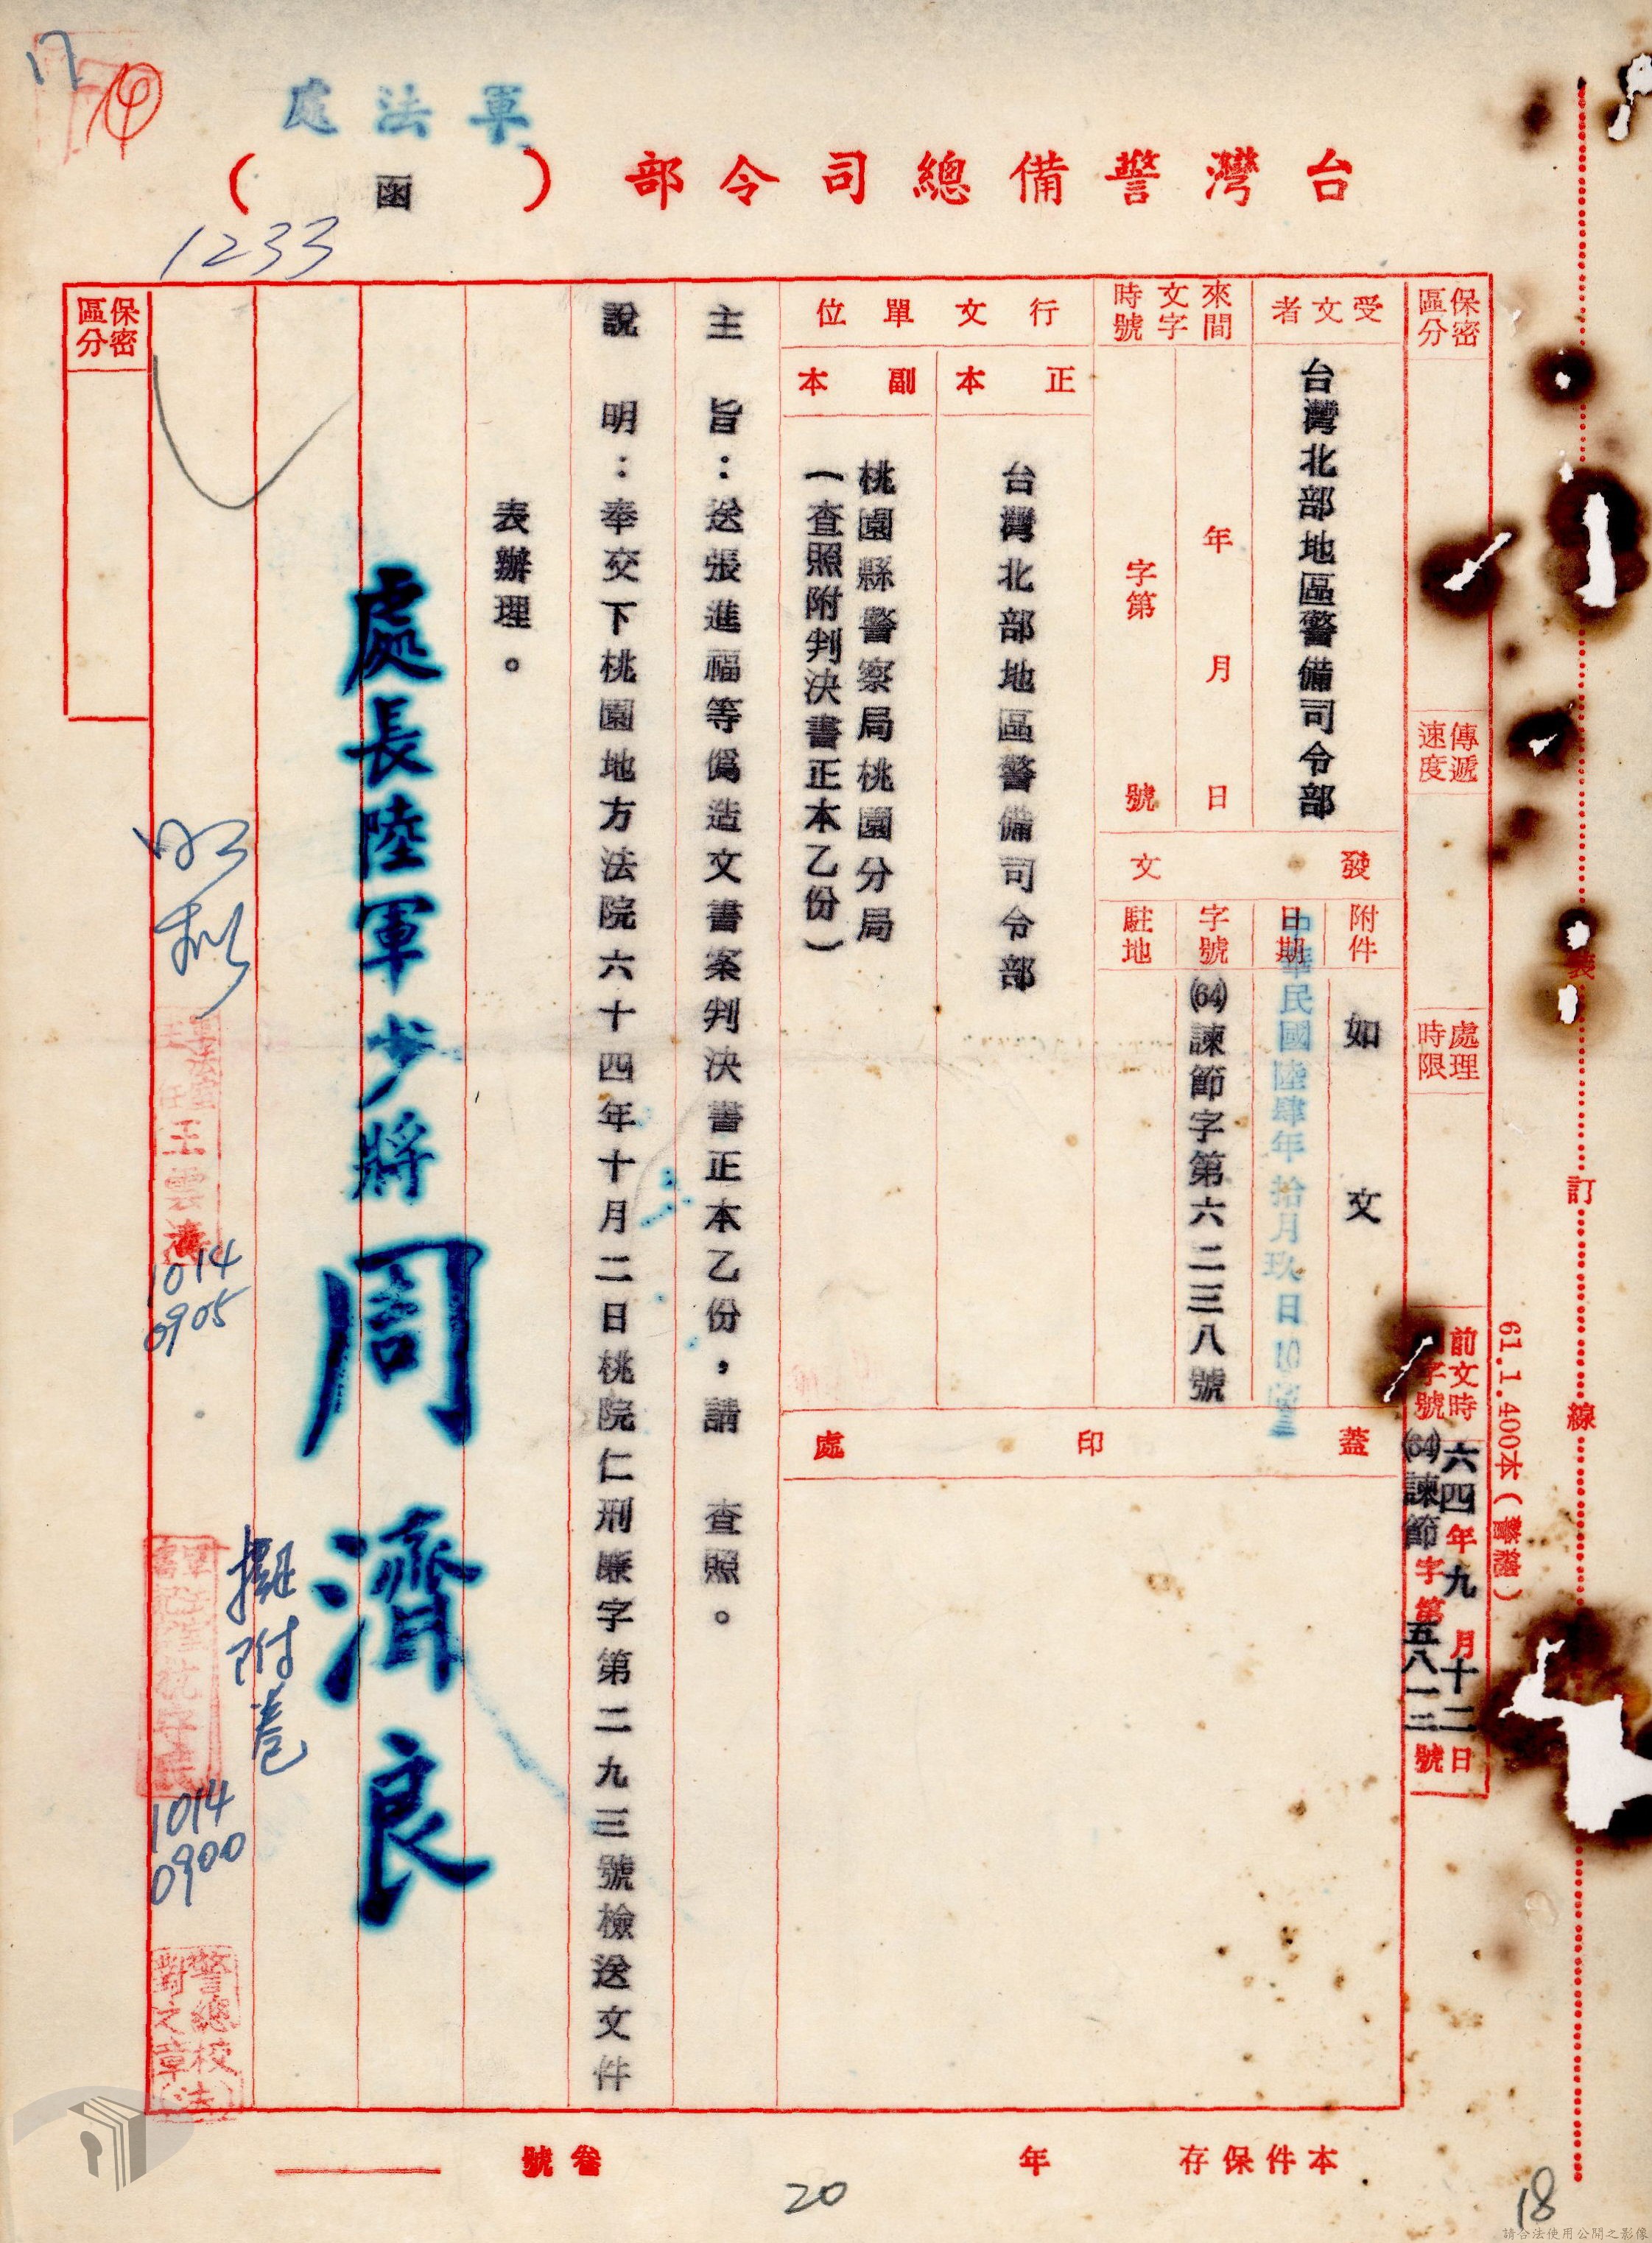 17
軍法處
台灣警備總司令部（函）
1233
保密區分
傳遞速度
處理時限
前文時字號
六四年九月十二日
(64)諫節字第五八一三號
61.1.400本（警聯）
裝訂線
受文者
台灣北部地區警備司令部
來文時間字號
年月日
字第號
發文
附件
如文
日期
中華民國陸肆年拾月玖日
字號
(64)諫節字第六二三八號
駐地
行文單位
正本
台灣北部地區警備司令部
副本
桃園縣警察局桃園分局
（查照附判決書正本乙份）
蓋印處
主旨：送張進福等偽造文書案判決書正本乙份，請　查照。
說明：奉交下桃園地方法院六十四年十月二日桃院仁刑廉字第二九三號檢送文件
表辦理。
處長陸軍少將周濟良
擬附卷
王雲濤
1014
0905
1014
0900
警總校
對之章(法)
保密區分
本件保存年
卷號
20
18
請合法使用公開之影像